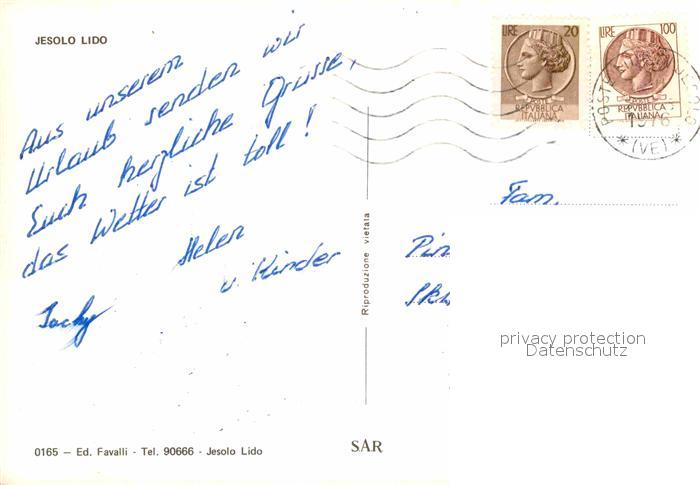 JESOLO LIDO
LIRE 20
REPVBBLICA
ITALIANA
LIRE 100
REPVBBLICA
ITALIANA
1976
*(VE)*
Aus unserem
Urlaub senden wir
Euch herzliche Grüsse,
das Wetter ist toll!
Helen
u. Kinder
Jacky
Fam.
Pin
Sk
Riproduzione vietata
privacy protection
Datenschutz
0165 – Ed. Favalli - Tel. 90666 - Jesolo Lido
SAR